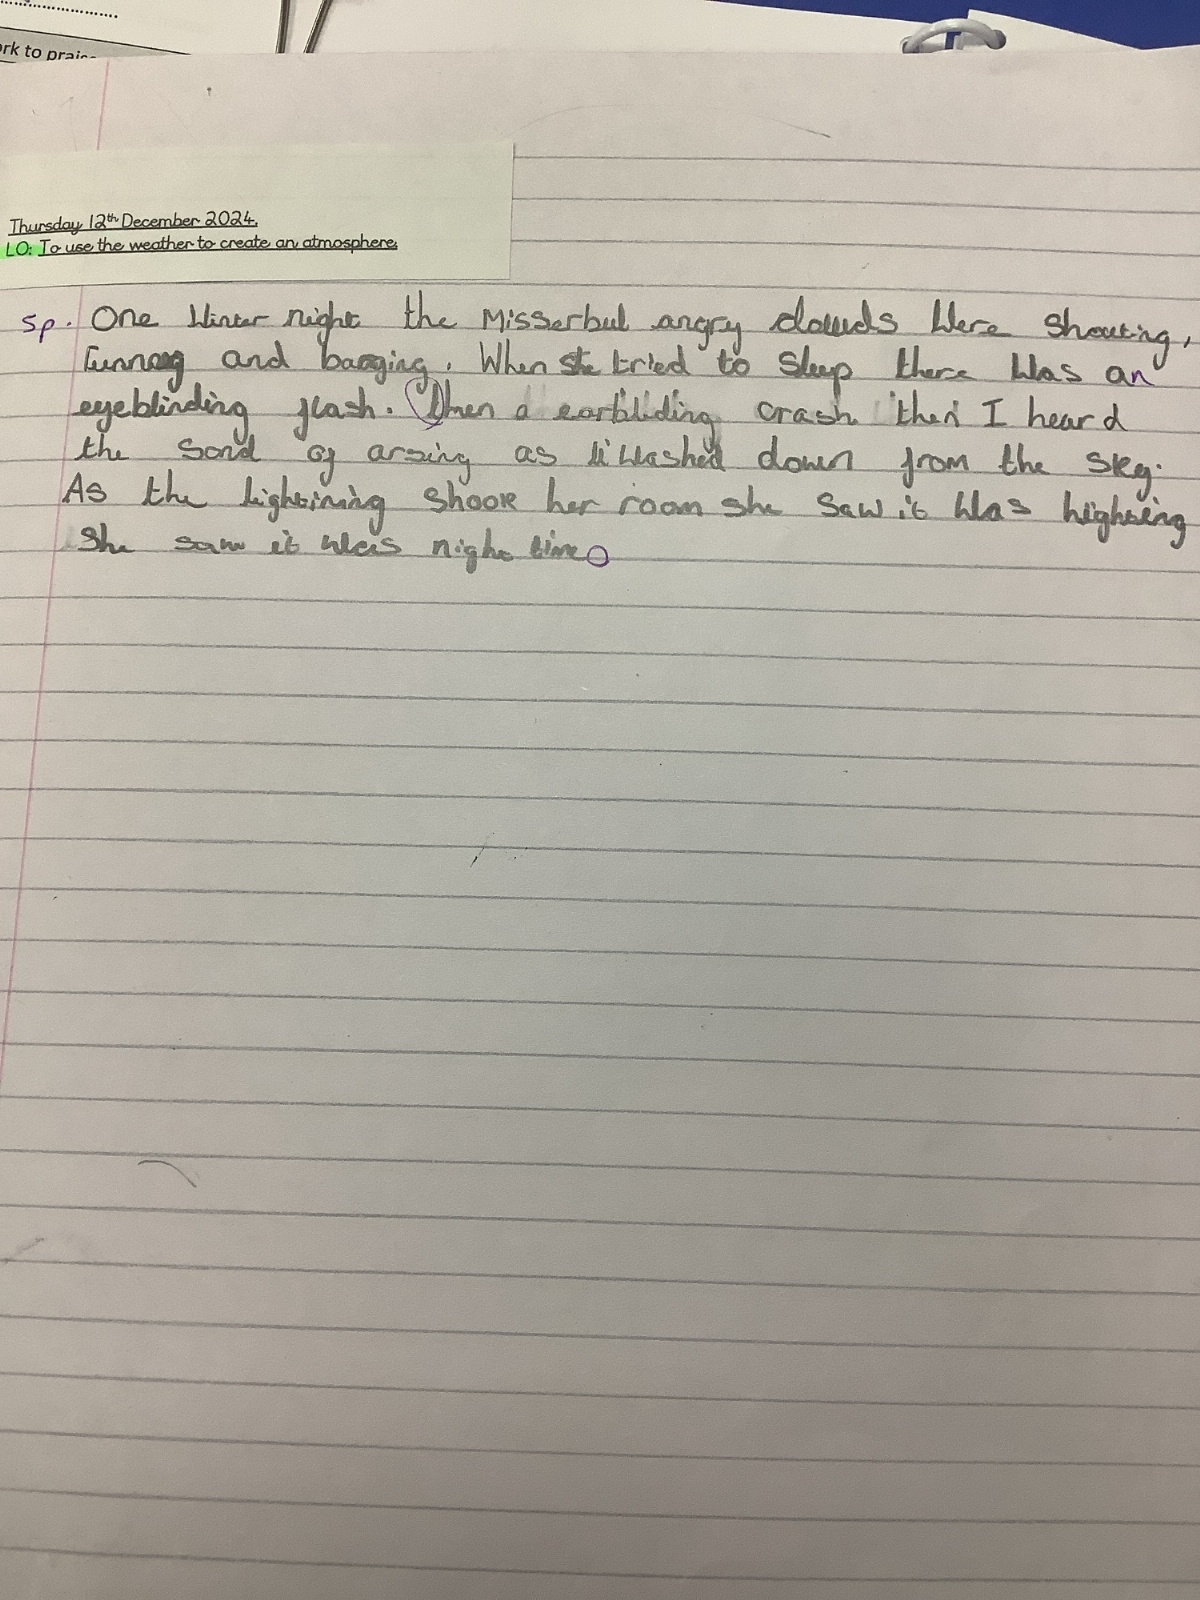 ork to prais
Thursday 12th December 2024.
LO: To use the weather to create an atmosphere.
Sp. One Winter night the Misserbul angry clouds Were Shouting,
and banging. When She tried to Sleep there Was an
eyeblinding flash. then a earblinding crash then I heard
the Sond of arsing as it Wlashed down from the Sky.
As the lightining Shook her room she Saw it Was
She saw it was night time